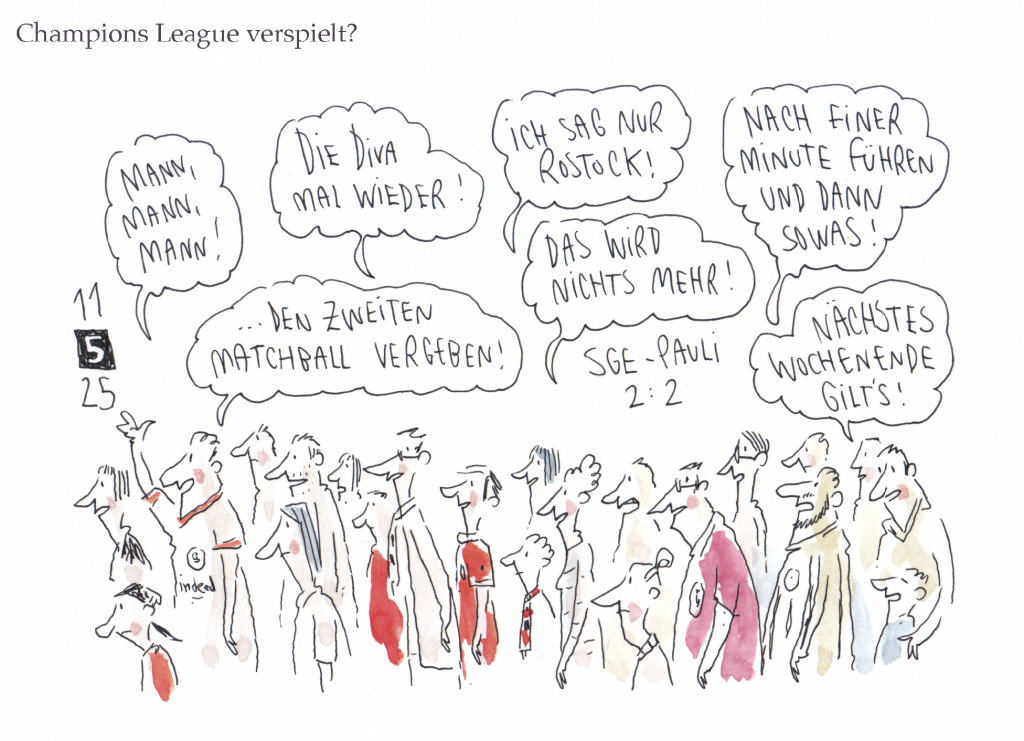 Champions League verspielt?
MANN,
MANN,
MANN!
DIE DIVA
MAL WIEDER!
ICH SAG NUR
ROSTOCK!
NACH EINER
MINUTE FÜHREN
UND DANN
SOWAS!
DAS WIRD
NICHTS MEHR!
...DEN ZWEITEN
MATCHBALL VERGEBEN!
NÄCHSTES
WOCHENENDE
GILT'S!
11
5
25
SGE-PAULI
2:2
indeed